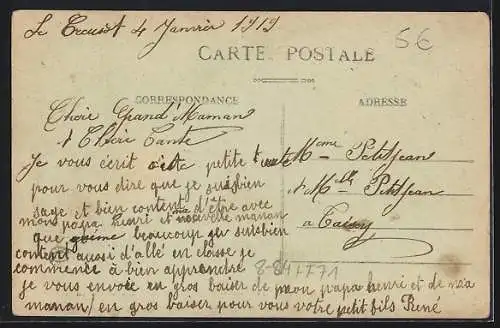 Le Creusot 4 Janvier 1919
5€
CARTE POSTALE
CORRESPONDANCE
ADRESSE
Chère Grand'Maman
& Chère Tante
Je vous écrit cete petite carte
pour vous dire que je suis bien
sage et bien content d'être avec
mon papa henri et ma nouvelle manan
que j'aime beaucoup je suis bien
content aussi d'allé en classe je
commence à bien apprendre
je vous envoie en gros baiser de mon papa henri et de ma
manan / en gros baiser pour vous votre petit fils René
Mme Petitjean
& Mlle Petitjean
a
8-84+F71